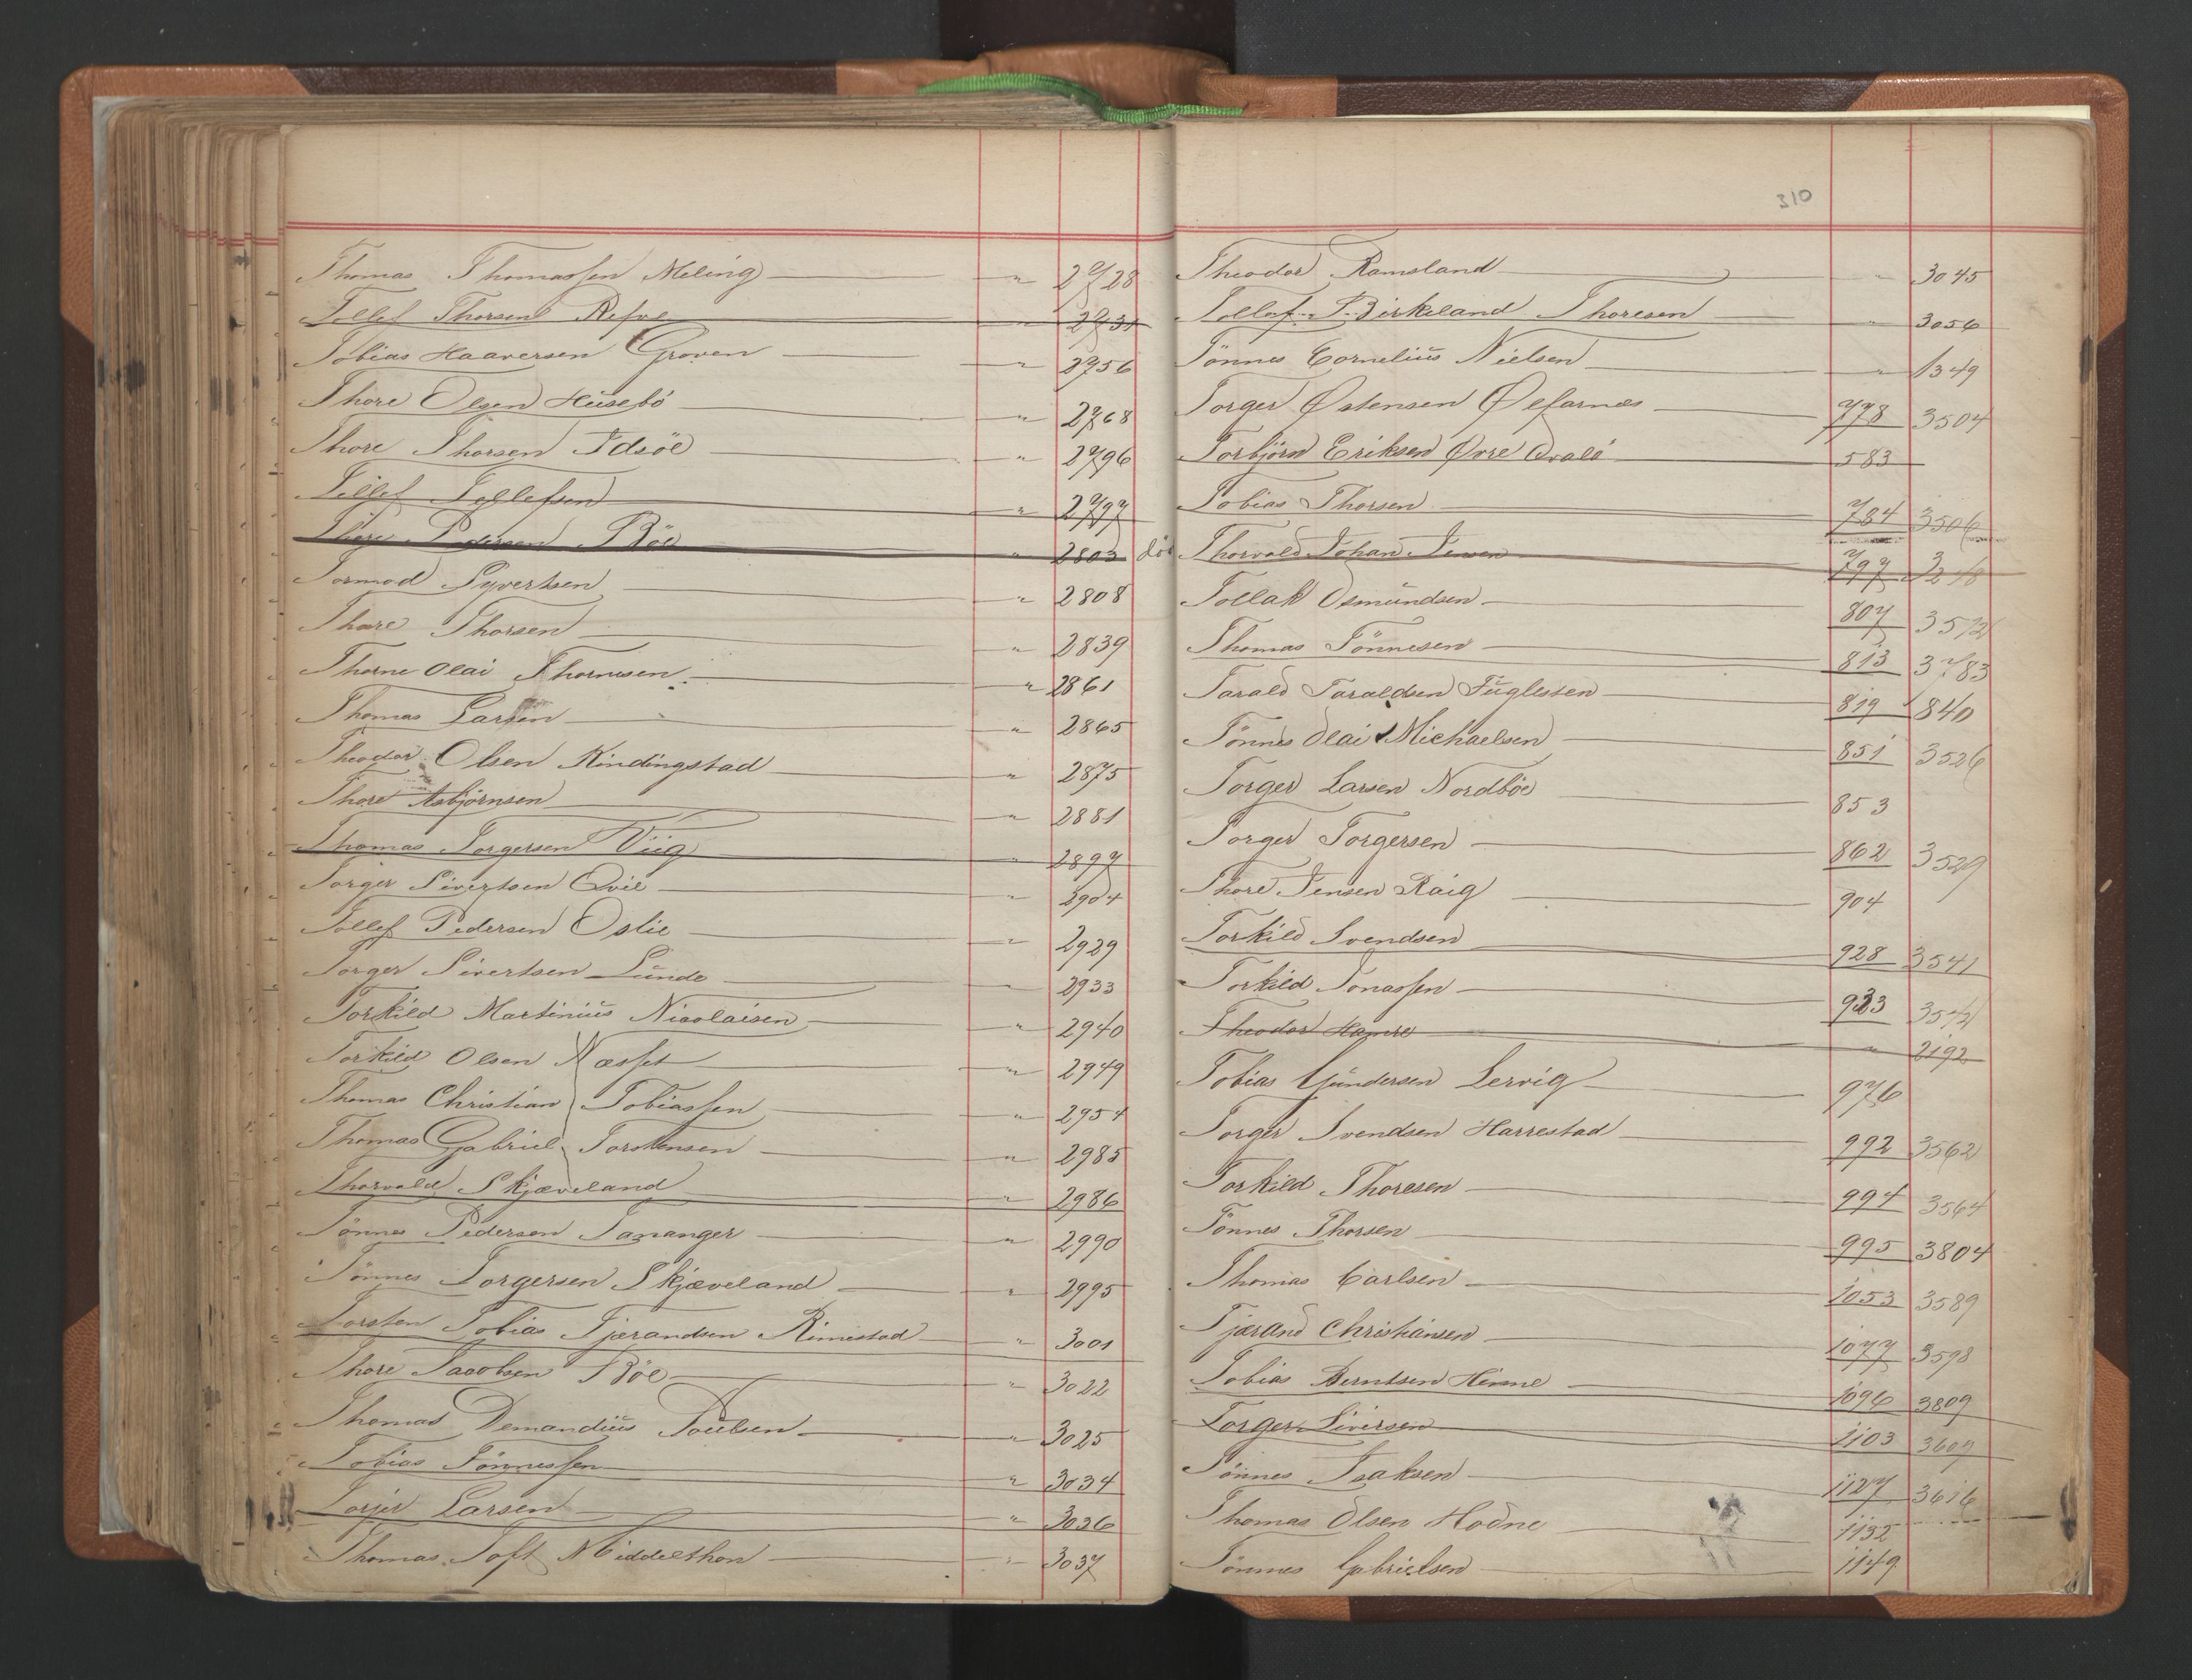 Thomas Thomassen Meling " 2728
Tollef Thorsen Refve " 2731
Tobias Haaversen Groven " 2756
Thore Olsen Husebö " 2768
Thore Thorsen Idsöe " 2796
Tollef Tollefsen " 2797
Thore Pedersen Böe " 2803 död
Tormod Syvertsen " 2808
Thore Thorsen " 2839
Thorne Olai Thornesen " 2861
Thomas Larsen " 2865
Theodor Olsen Rindingstad " 2875
Thore Asbjørnsen " 2881
Thomas Torgersen Viig " 2897
Torger Sivertsen Qvie " 2904
Tollef Pedersen Oslie " 2929
Torger Sivertsen Lunde " 2933
Torkild Martinius Nicolaisen " 2940
Torkild Olsen Næsset " 2949
Thomas Christian Tobiassen " 2954
Thomas Gabriel Torstensen " 2985
Thorvald Skjæveland " 2986
Tönnes Pedersen Tananger " 2990
Tönnes Torgersen Skjæveland " 2995
Torsten Tobias Tjerandsen Rimestad " 3001
Thore Jacobsen Böe " 3022
Thomas Demandius Poulsen " 3025
Tobias Tönnessen " 3034
Torjer Larsen " 3036
Thomas Toft Middelthon " 3037
310
Theodor Ramsland " 3045
Tollef Birkeland Thoresen " 3056
Tönnes Cornelius Nielsen " 1349
Torger Østensen Østarnæs 778 3504
Torbjörn Eriksen Øvre Qvalö 583
Tobias Thorsen 784 3506
Thorvald Johan Jensen 797 3218
Tollak Osmundsen 807 3512
Thomas Tönnesen 813 3783
Tarald Taraldsen Fuglesteen 819 840
Tönnes Olai Michaelsen 851 3526
Torger Larsen Nordböe 853
Torger Torgersen 862 3529
Thore Jensen Raig 904
Torkild Svendsen 928 3541
Torkild Jonassen 933 3542
Theodor Hamre " 2192
Tobias Gundersen Lervig 976
Torger Svendsen Harrestad 992 3562
Torkild Thoresen 994 3564
Tönnes Thorsen 995 3804
Thomas Carlsen 1053 3589
Tjerand Christiansen 1077 3598
Tobias Berntsen Hinne 1096 3809
Torger Siversen 1103 3607
Tönnes Isaksen 1127 3616
Thomas Olsen Hodne 1132
Tönnes Gabrielsen 1149